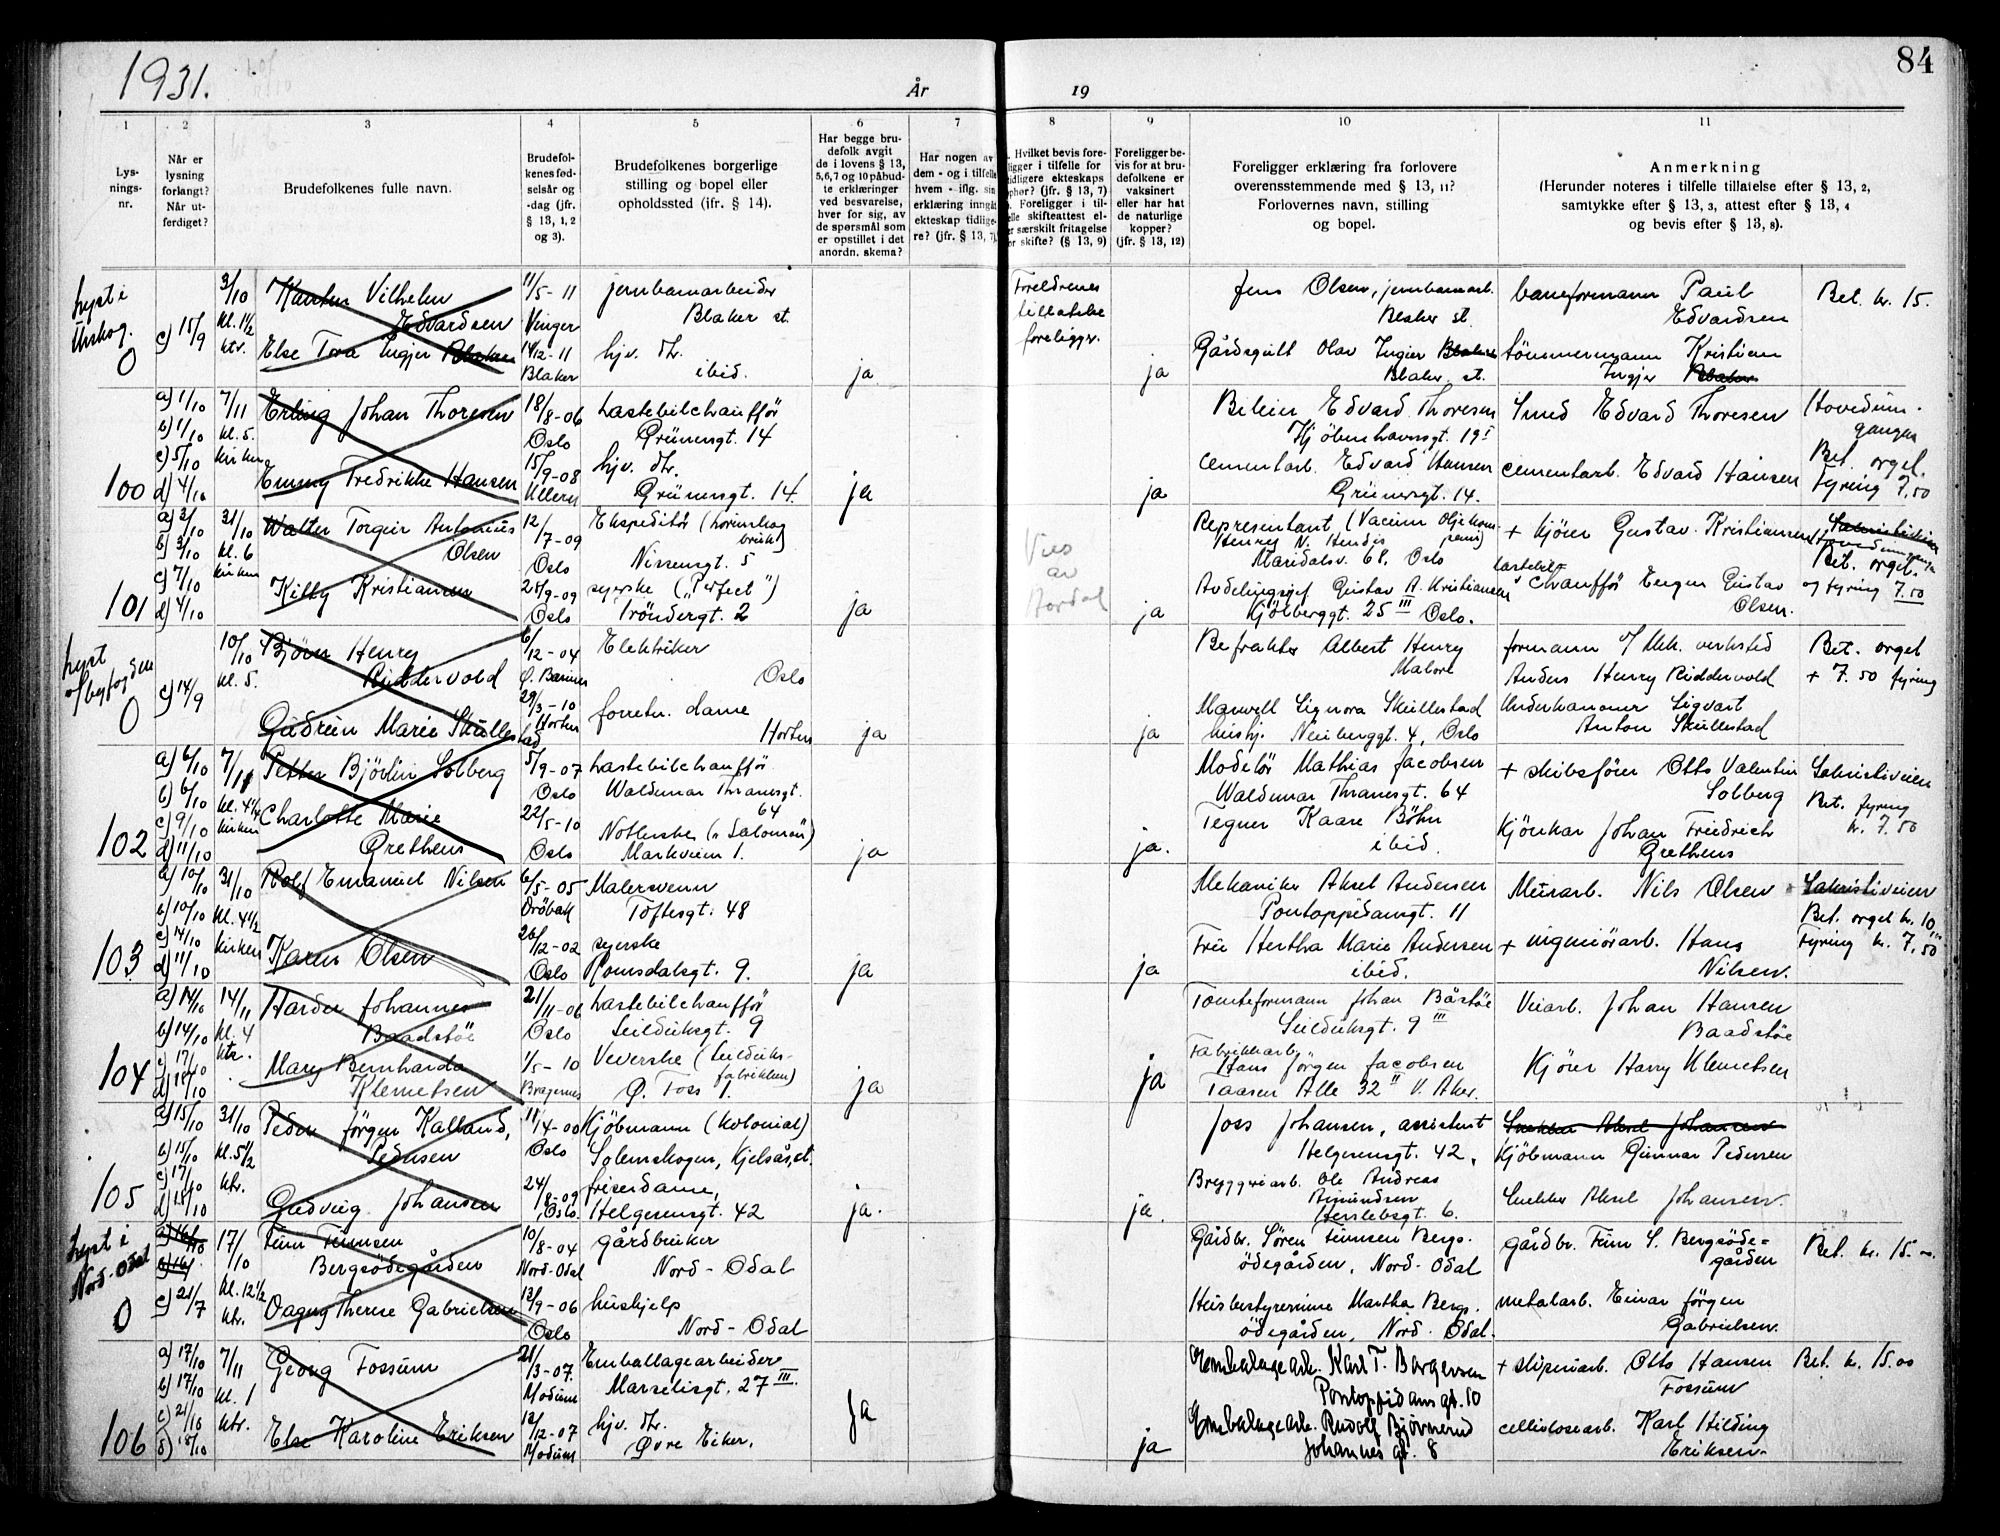 1931.
År
19
84
1
2
3
4
5
6
7
8
9
10
11
Lys-
nings-
nr.
Når er
lysning
forlangt?
Når ut-
ferdiget?
Brudefolkenes fulle navn.
Brudefol-
kenes fød-
selsår og
-dag (jfr.
§ 13, 1, 2
og 3).
Brudefolkenes borgerlige
stilling og bopel eller
opholdssted (jfr. § 14).
Har begge bru-
defolk avgit
de i lovens § 13,
5, 6, 7 og 10 påbud-
te erklæringer
ved besvarelse,
hver for sig, av
de spørsmål som
er opstillet i det
anordn. skema?
Har nogen av
dem - og i tilfelle
hvem - iflg. sin
erklæring inngåt
ekteskap tidlige-
re? (jfr. § 13, 7)
Hvilket bevis fore-
ligger i tilfelle for
tidligere ekteskaps
ophør? (jfr. § 13, 7)
Foreligger i til-
felle skifteattest el-
er særskilt fritagelse
for skifte? (§ 13, 9)
Foreligger be-
vis for at bru-
defolkene er
vaksinert
eller har hat
de naturlige
kopper?
(jfr. § 13, 12)
Foreligger erklæring fra forlovere
overensstemmende med § 13, 11?
Forlovernes navn, stilling
og bopel.
Anmerkning
(Herunder noteres i tilfelle tillatelse efter § 13, 2,
samtykke efter § 13, 3, attest efter § 13, 4
og bevis efter § 13, 8).
lyst i
Urskog.
0
c) 15/9
3/10
kl. 1 1/2
ktr.
Karsten Vilhelm
Edvardsen
Else Tora Ingjer Blaker
11/5-11
Vinger
14/12-11
Blaker
jernbanearbeider
Blaker st.
hjv. dtr.
ibid.
ja
Foreldrenes
tillatelse
foreligger.
ja
Jens Olsen, jernbanearb.
Blaker st.
Gårdsgutt Olav Ingjer Blaker
Blaker st.
baneformann Paul
Edvardsen
tömmermann Kristian
Ingjer Blaker
Bet. kr. 15.
100
a) 1/10
b) 1/10
c) 5/10
d) 4/10
7/11
kl. 5.
kirken
Erling Johan Thoresen
Emmy Fredrikke Hansen
18/8-06
Oslo
15/9-08
Ullern
Lastebilchaufför
Grünersgt. 14
hjv. dtr.
Grünersgt. 14.
ja
ja
Bileier Edvard Thoresen
Kjöbenhavnsgt. 19 I
Cementarb. Edvard Hansen
Grünersgt. 14.
Smed Edvard Thoresen
cementarb. Edvard Hansen
Hovedinn-
gangen
Bet. orgel.
Fyring 7.50
101
a) 3/10
b) 3/10
c) 7/10
d) 4/10
31/10
kl. 6
kirken
Walter Torgeir Antonius
Olsen
Kitty Kristiansen
12/7-09
Oslo
25/9-09
Oslo
Ekspeditör (Lörenskog
bruk)
Nissensgt. 5
syerske ("Perfect")
Tröndergt. 2
ja
Vies
av
Hordal
ja
Representant (Vacuum Oljekom-
pani)
Henry N.
Maridalsv. 68, Oslo
Avdelingssjef Gustav A. Kristiansen
Kjölberggt. 25 III Oslo.
+ Kjörer Gustav Kristiansen
lastebil-
chaufför Eugen Gustav
Olsen.
Sakristiveien
Hovedinngangen
Bet. orgel.
og fyring 7.50
lyst
af byfogden
0
c) 14/9
10/10
kl. 5.
Björn Henry
Riddervold
Gudrun Marie Skullestad
6/12-04
Ö. Bærum
29/3-10
Horten
Elektriker
Oslo
forretn. dame
Horten
ja
ja
Befrakter Albert Henry
Malore
Maxwell Signora Skullestad
husfr. Neuberggt. 4, Oslo
formann v/ Mek. verksted
Anders Henry Riddervold
Underkanoner Sigvart
Anton Skullestad
Bet. orgel
+ 7.50 fyring
102
a) 6/10
b) 6/10
c) 9/10
d) 11/10
7/11
kl. 4 1/4
kirken
Petter Björlin Solberg
Charlotte Marie
Grethens
5/9-07
Oslo
22/5-10
Oslo
Lastebilchaufför
Waldemar Thranesgt.
64
Notterske ("Salomon")
Markveien 1.
ja
ja.
Modelör Mathias Jacobsen
Waldemar Thranesgt. 64
Tegner Kaare Böhn
ibid.
+ skibsförer Otto Valentin
Solberg
Kjönkar Johan Friedrich
Grethens
Sakristiveien
Bet. fyring
kr. 7.50
103
a) 10/10
b) 10/10
c) 14/10
d) 11/10
31/10
kl. 4 1/2
kirken
Rolf Emanuel Nilsen
Karen Olsen
6/5-05
Dröbak
26/12-02
Oslo
Malersvenn
Toftesgt. 48
syerske
Romsdalsgt. 9.
ja
ja
Mekaniker Aksel Andersen
Pontoppidansgt. 11
Frue Hertha Marie Andersen
ibid.
Murarb. Nils Olsen
+ ingeniörarb. Hans
Nilsen.
Sakristiveien
Bet. orgel kr. 10,
Fyring kr. 7.50
104
a) 14/10
b) 14/10
c) 17/10
d) 18/10
14/11
kl. 4
ktr.
Harder Johannes
Baadstöe
Mary Bernharda
Klemetsen
21/11-06
Oslo
1/5-10
Bragernes
Lastebilchaufför
Seilduksgt. 9
Veverske (Seilduks-
fabrikken)
Ö. Foss 1.
ja
ja
Tomteformann Johan Båstöe
Seilduksgt. 9 III
Fabrikkarb.
Hans Jörgen Jacobsen
Taasen Alle 32 II V. Aker.
Veiarb. Johan Hansen
Baadstöe
Kjörer Harry Klemetsen
105
a) 15/10
b) 15/10
c) 17/10
d) 18/10
31/10
kl. 5 1/2
ktr.
Peder Jörgen Kalland,
Pedersen
Gudveig Johansen
11/14-00
Oslo
24/8-09
Oslo.
Kjöbmann (Kolonial)
Solemskogen, Kjelsås, st.
friserdame,
Helgesensgt. 42
ja.
ja.
Joss Johansen, assistent
Helgesensgt. 42.
Bryggeriarb. Ole Andreas
Amundsen
Herslebsgt. 6.
Snekker Aksel Johansen
Kjöbmann Gunnar Pedersen
Snekker Aksel Johansen.
Lyst i
Nord-Odal
0
a) 16/10
b) 16/
c) 21/7
17/10
kl. 12 1/2
ktr.
Finn Finnsen
Bergsödegården
Dagny Therese Gabrielsen
10/8-04
Nord-Odal
13/9-06
Oslo
gårdbruker
Nord-Odal
hushjelp
Nord-Odal
Gårdbr. Sören Finnsen Bergs-
ödegården, Nord-Odal
Husbestyrerinne Martha Bergs-
ödegården, Nord-Odal.
gårdbr. Finn S. Bergsöde-
gården
metalarb. Einar Jörgen
Gabrielsen.
Bet. kr. 15.-
106
a) 17/10
b) 17/10
c) 21/10
d) 18/10
7/11
kl. 1
ktr.
Georg Fossum
Else Karoline Eriksen
21/3-07.
Modum
12/12-07
Modum
Emballagearbeider
Marselisgt. 27 III.
hjv. dtr.
Övre Eiker.
ja
ja
Emballagearb. Karl T. Borgersen
Pontoppidans gt. 10
Emballagearb. Rudolf Bjövnerud
Johannes gt. 8
+ sliperiarb. Otto Hansen
Fossum
cellulosearb. Karl Hilding
Eriksen.
Bet. kr. 15.00